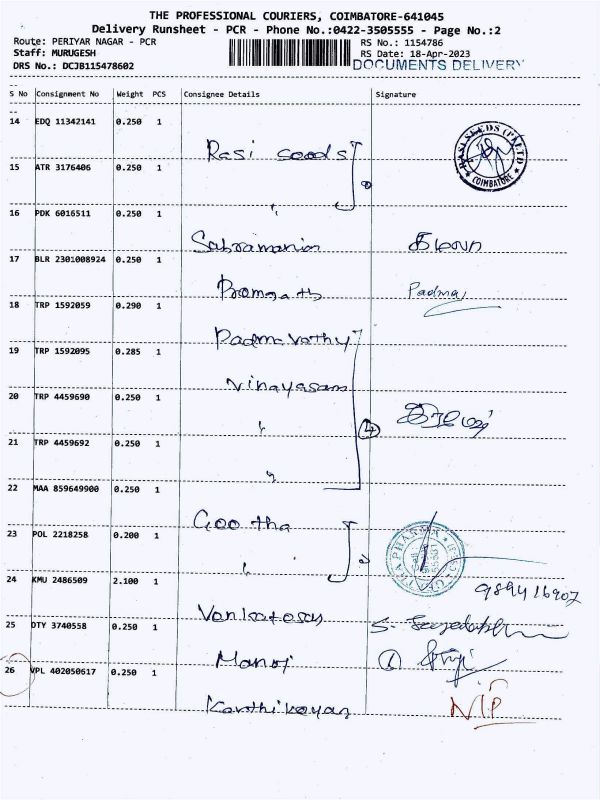 THE PROFESSIONAL COURIERS, COIMBATORE-641045
Delivery Runsheet - PCR - Phone No.:0422-3505555 - Page No.:2
Route: PERIYAR NAGAR - PCR
RS No.: 1154786
Staff: MURUGESH
RS Date: 18-Apr-2023
DRS No.: DCJB115478602
DOCUMENTS DELIVERY
S No Consignment No Weight PCS Consignee Details Signature
14 EDQ 11342141 0.250 1
Rasi seeds
RASI SEEDS (P) LTD
COIMBATORE
15 ATR 3176406 0.250 1
"
16 PDK 6016511 0.250 1
Subramanian
17 BLR 2301008924 0.250 1
Padma
18 TRP 1592059 0.290 1
Padmavathy
19 TRP 1592095 0.285 1
Vinayagam
20 TRP 4459690 0.250 1
"
4
21 TRP 4459692 0.250 1
"
22 MAA 859649900 0.250 1
Geetha
23 POL 2218258 0.200 1
"
24 KMU 2486509 2.100 1
Venkatesan
25 DTY 3740558 0.250 1
Manoj
26 VPL 402050617 0.250 1
Karthikeyan